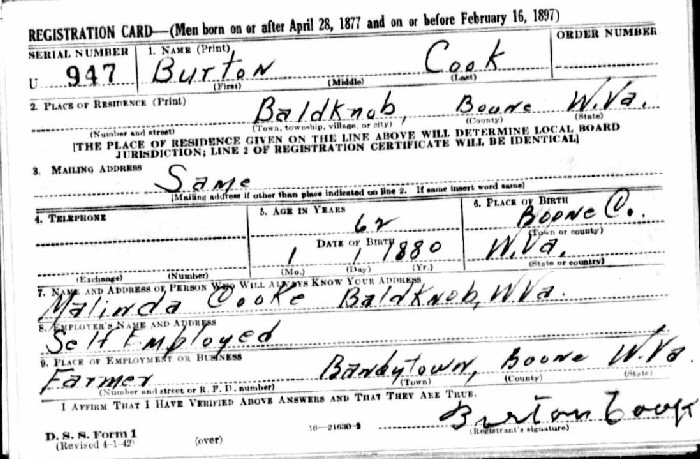 REGISTRATION CARD—(Men born on or after April 28, 1877 and on or before February 16, 1897)
SERIAL NUMBER 1. NAME (Print) ORDER NUMBER
U 947 Burton Cook
(First) (Middle) (Last)
2. PLACE OF RESIDENCE (Print)
BaldKnob, Boone W.Va.
(Number and street) (Town, township, village, or city) (County) (State)
[THE PLACE OF RESIDENCE GIVEN ON THE LINE ABOVE WILL DETERMINE LOCAL BOARD
JURISDICTION; LINE 2 OF REGISTRATION CERTIFICATE WILL BE IDENTICAL]
3. MAILING ADDRESS
Same
[Mailing address if other than place indicated on line 2. If same insert word same]
4. TELEPHONE 5. AGE IN YEARS 6. PLACE OF BIRTH
62 Boone Co.
DATE OF BIRTH (Town or county)
1 1 1880 W.Va.
(Exchange) (Number) (Mo.) (Day) (Yr.) (State or country)
7. NAME AND ADDRESS OF PERSON WHO WILL ALWAYS KNOW YOUR ADDRESS
Malinda Cooke BaldKnob, W.Va.
8. EMPLOYER'S NAME AND ADDRESS
Self Employed
9. PLACE OF EMPLOYMENT OR BUSINESS
Farmer Bandytown, Boone W.Va.
(Number and street or R. F. D. number) (Town) (County) (State)
I AFFIRM THAT I HAVE VERIFIED ABOVE ANSWERS AND THAT THEY ARE TRUE.
Burton Cook
D. S. S. Form 1 16—21630-1 (Registrant's signature)
(Revised 4-1-42) (over)